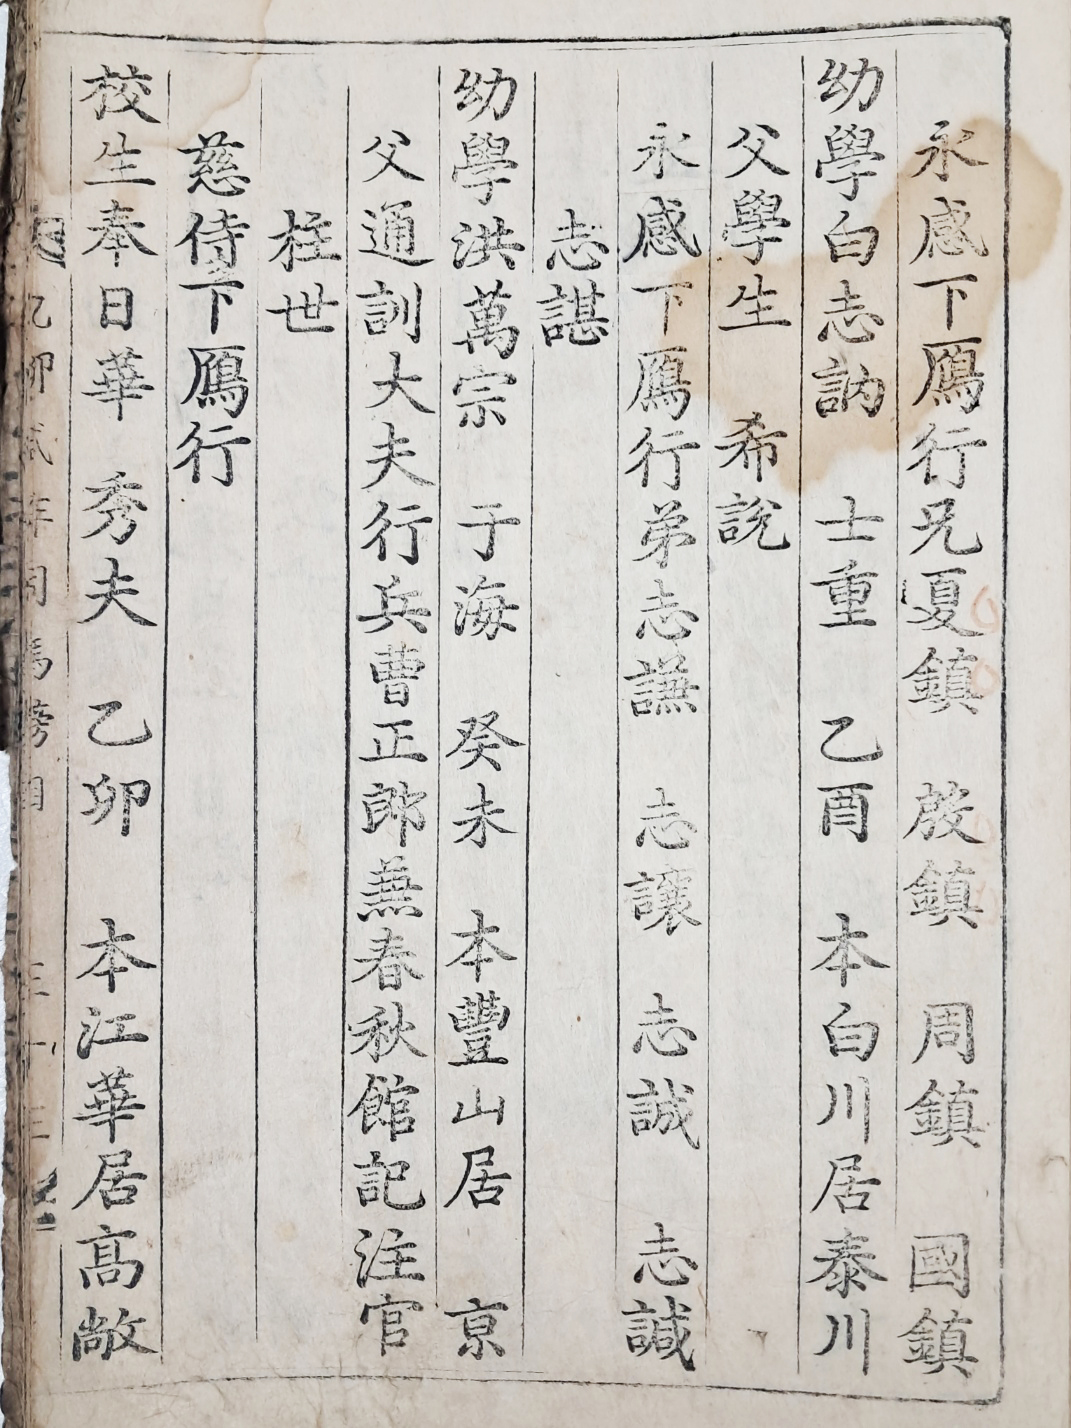 永感下鴈行兄夏鎮 啓鎮 周鎮 國鎮
幼學白志訥 士重 乙酉 本白川居泰川
父學生 希說
永感下鴈行弟志謙 志讓 志誠 志諴
志諶
幼學洪萬宗 于海 癸未 本豐山居 京
父通訓大夫行兵曹正郎兼春秋館記注官
柱世
慈侍下鴈行
校生奉日華 秀夫 乙卯 本江華居高敞
乙卯式年司馬榜目 三十三